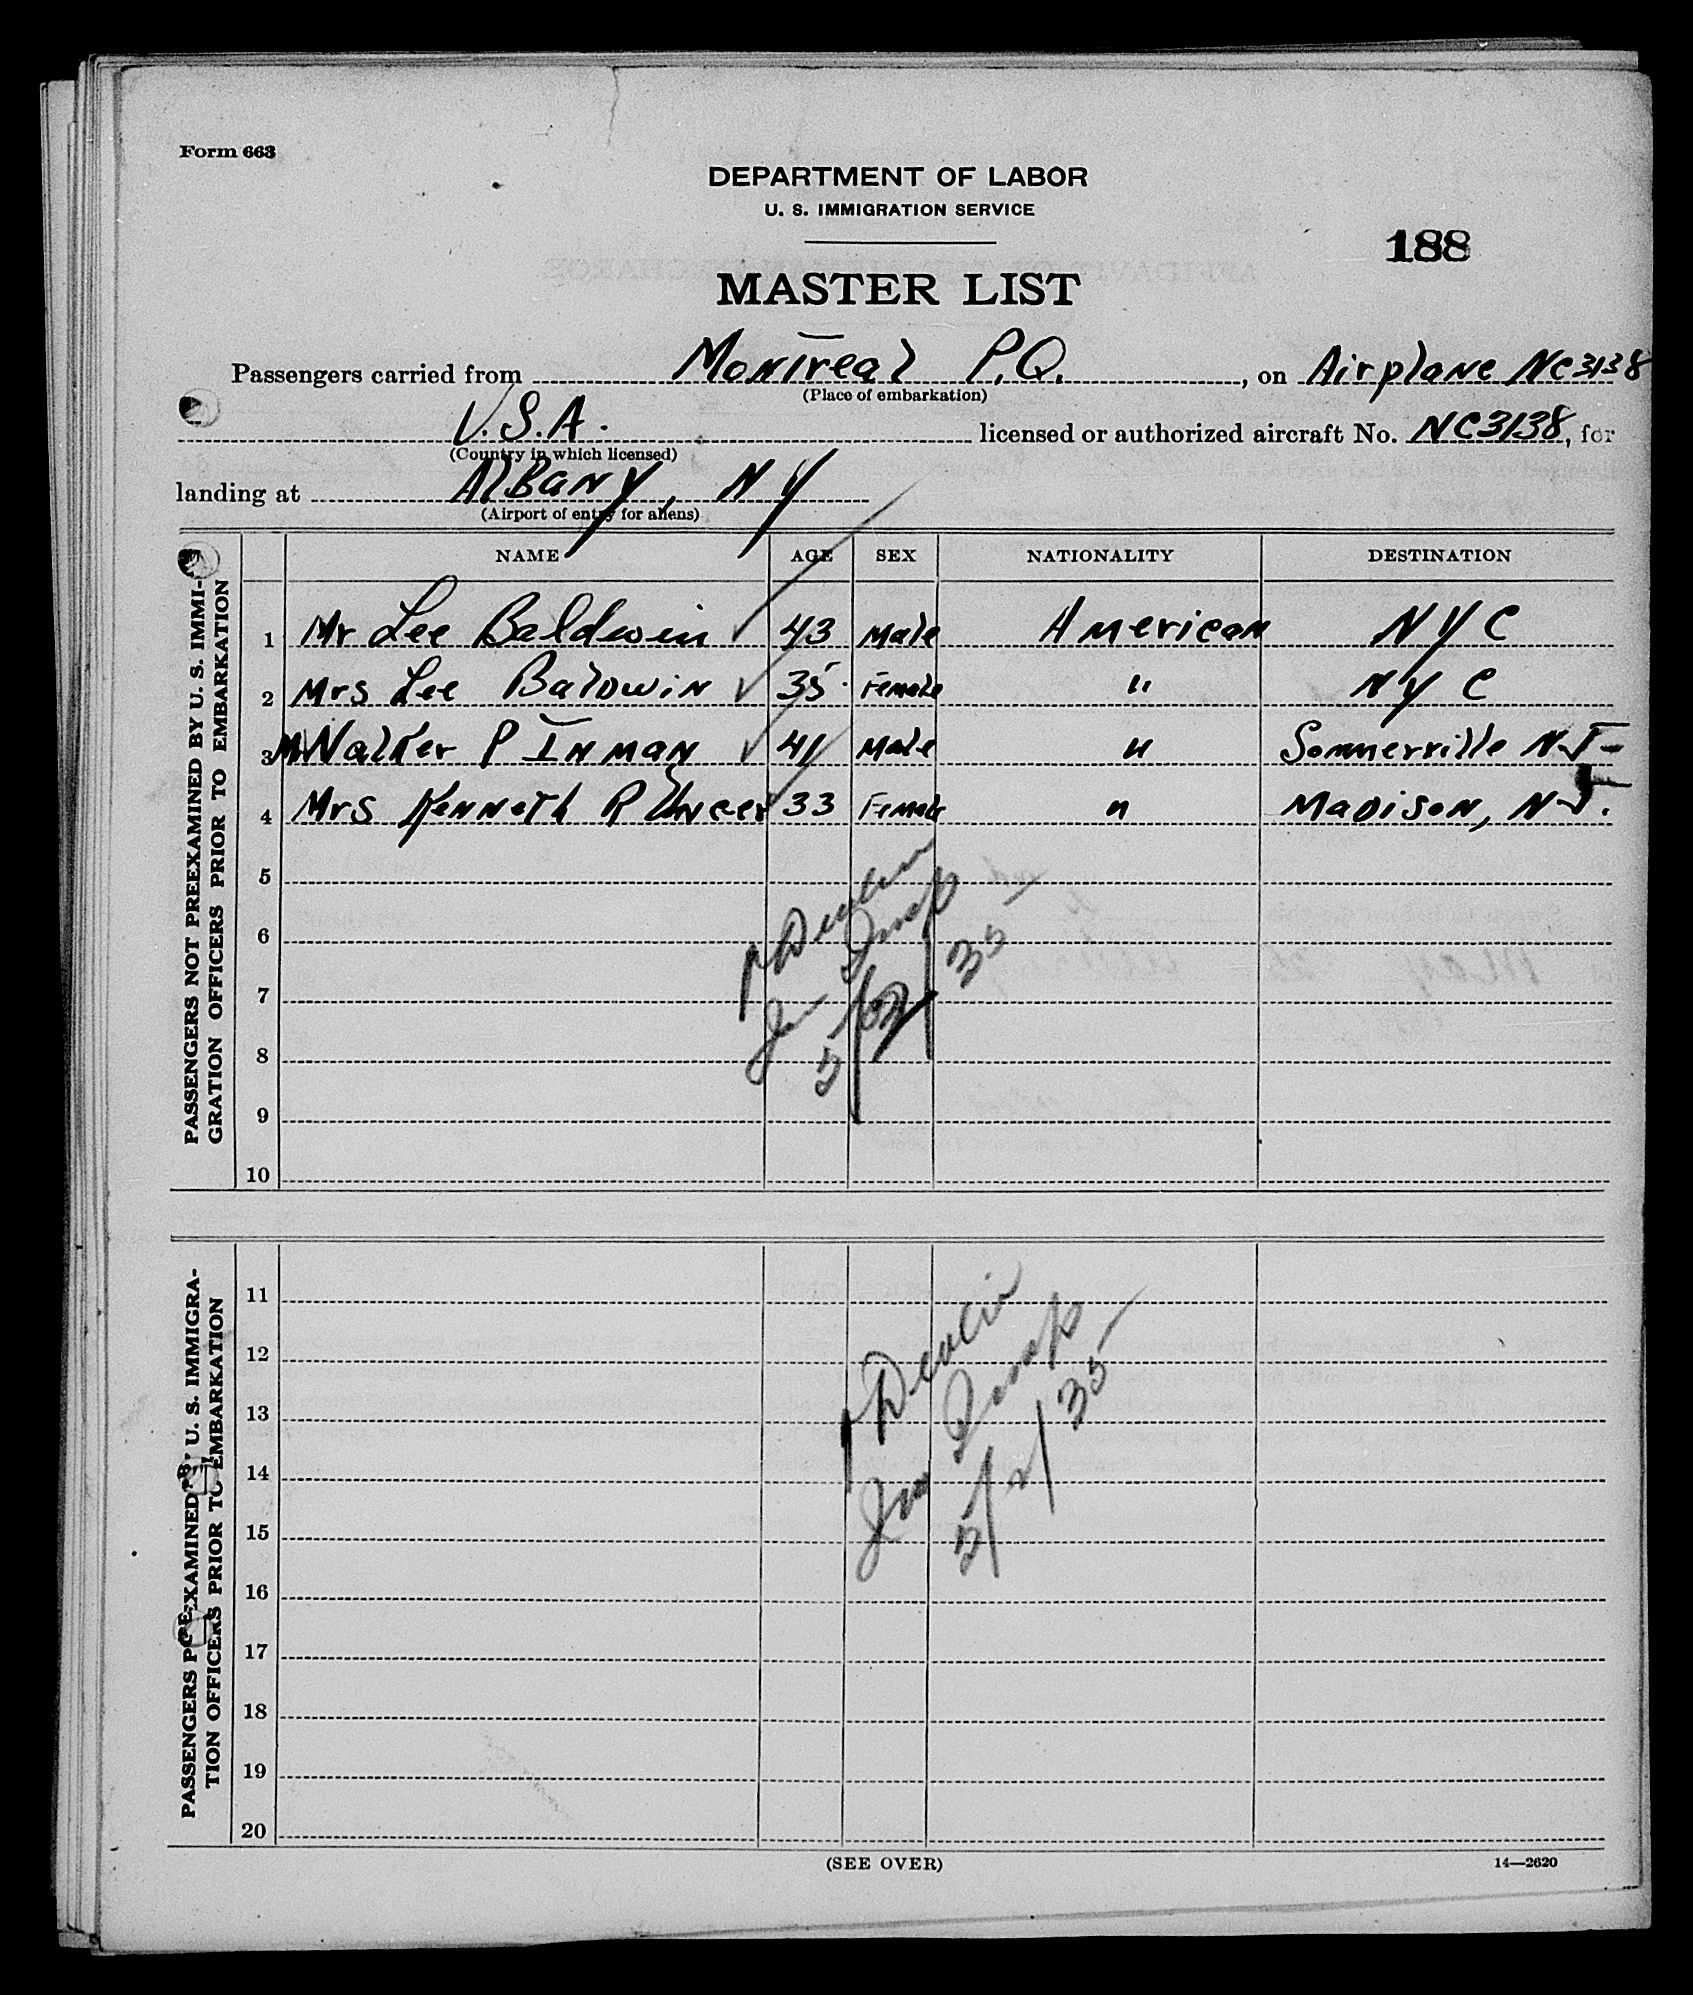 Form 663
DEPARTMENT OF LABOR
U. S. IMMIGRATION SERVICE
188
MASTER LIST
Passengers carried from Montreal P.Q., on Airplane NC3138
(Place of embarkation)
U.S.A. licensed or authorized aircraft No. NC3138, for
(Country in which licensed)
landing at Albany, NY
(Airport of entry for aliens)
NAME AGE SEX NATIONALITY DESTINATION
PASSENGERS NOT PREEXAMINED BY U. S. IMMI-
GRATION OFFICERS PRIOR TO EMBARKATION
1 Mr Lee Baldwin 43 Male American NYC
2 Mrs Lee Baldwin 35 Female " NYC
3 Mr Walker P Inman 41 Male " Sommerville N-J-
4 Mrs Kenneth R 33 Female " Madison, N-J.
5
6
7
8
9
10
Insp
35
PASSENGERS PREEXAMINED BY U. S. IMMIGRA-
TION OFFICERS PRIOR TO EMBARKATION
11
12
13
14
15
16
17
18
19
20
Devlin
Imm Insp
5/2/35
(SEE OVER)
14—2620